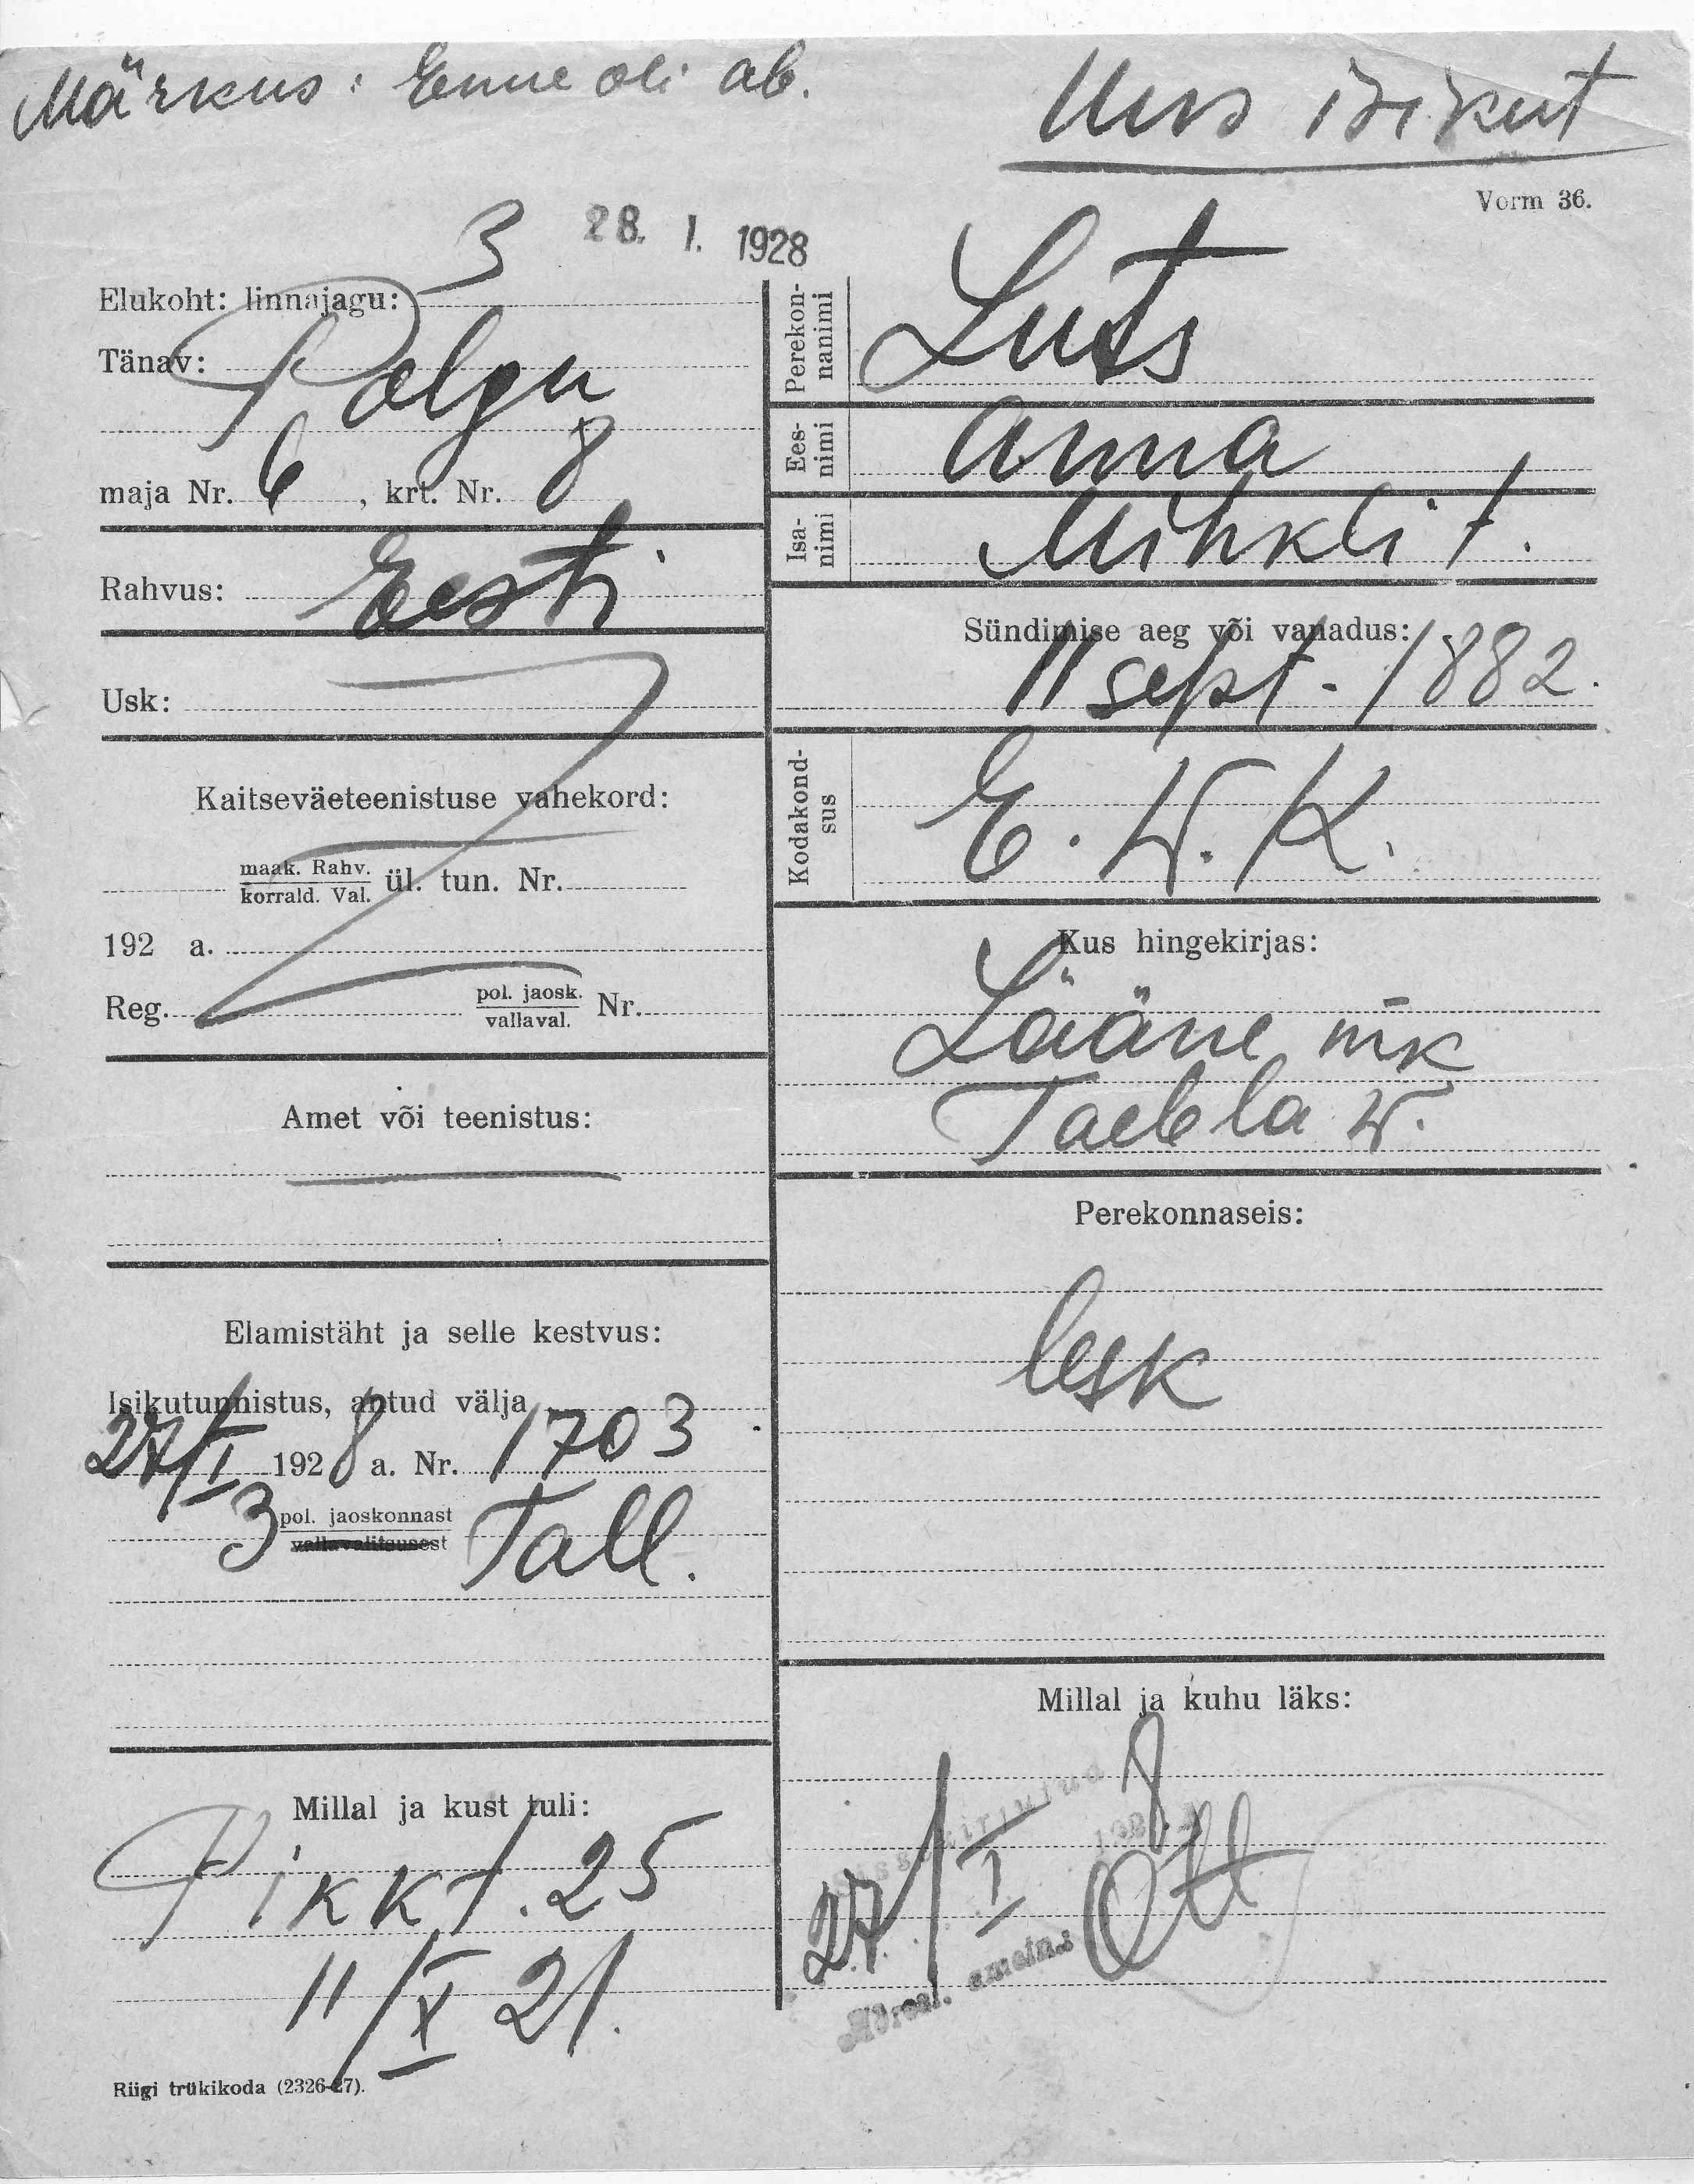 Märkus: Enne oli ab.
Uus isikut
Vorm 36.
28. I. 1928
Elukoht: linnajagu: 3
Tänav: Polgu
maja Nr. 6, krt. Nr. 8
Rahvus: Eesti
Usk:
Kaitseväeteenistuse vahekord:
maak. Rahv.
korrald. Val. ül. tun. Nr.
192 a.
Reg. pol. jaosk.
vallaval. Nr.
Amet või teenistus:
Elamistäht ja selle kestvus:
Isikutunnistus, antud välja
27/I 1928 a. Nr. 1703
3 pol. jaoskonnast Tall.
vallavalitsusest
Millal ja kust tuli:
Pikk t. 25
11/X 21.
Riigi trükikoda (2326-27).
Perekonnanimi Luts
Eesnimi Anna
Isanimi Mihkli t.
Sündimise aeg või vanadus:
11 sept. 1882.
Kodakondsus E. W. K.
Kus hingekirjas:
Lääne mk
Taebla w.
Perekonnaseis:
lesk
Millal ja kuhu läks:
27/I 8